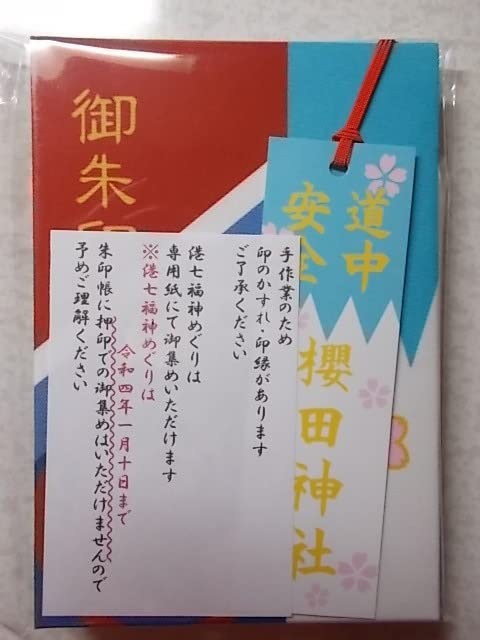 道中
安全
櫻田神社
手作業のため
印のかすれ・印縁があります
ご了承ください
港七福神めぐりは
専用紙にて御集めいただけます
※港七福神めぐりは
令和四年一月十日まで
朱印帳に押印での御集めはいただけませんので
予めご理解ください
御朱印